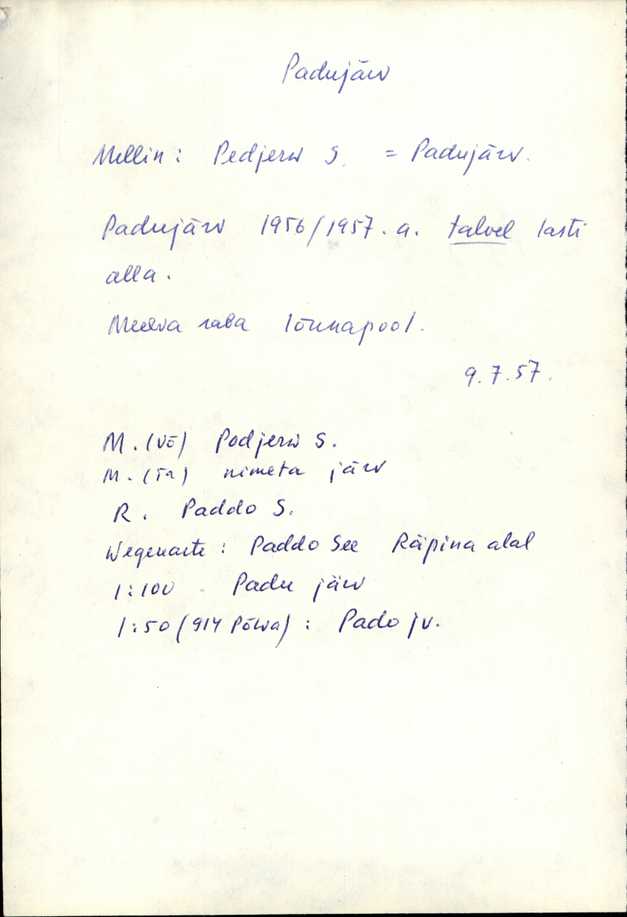 Padujärv
Mellin: Pedjerw S. = Padujärv.
Padujärv 1956/1957. a. talvel lasti
alla.
Meelva raba lõunapool.
9.7.57.
M. (Võ) Podjerw S.
M. (Ta) nimeta järv
R. Paddo S.
Wegekarte: Paddo See Räpina alal
1:100 Padu järv
1:50 (914 Põlva): Pado jv.